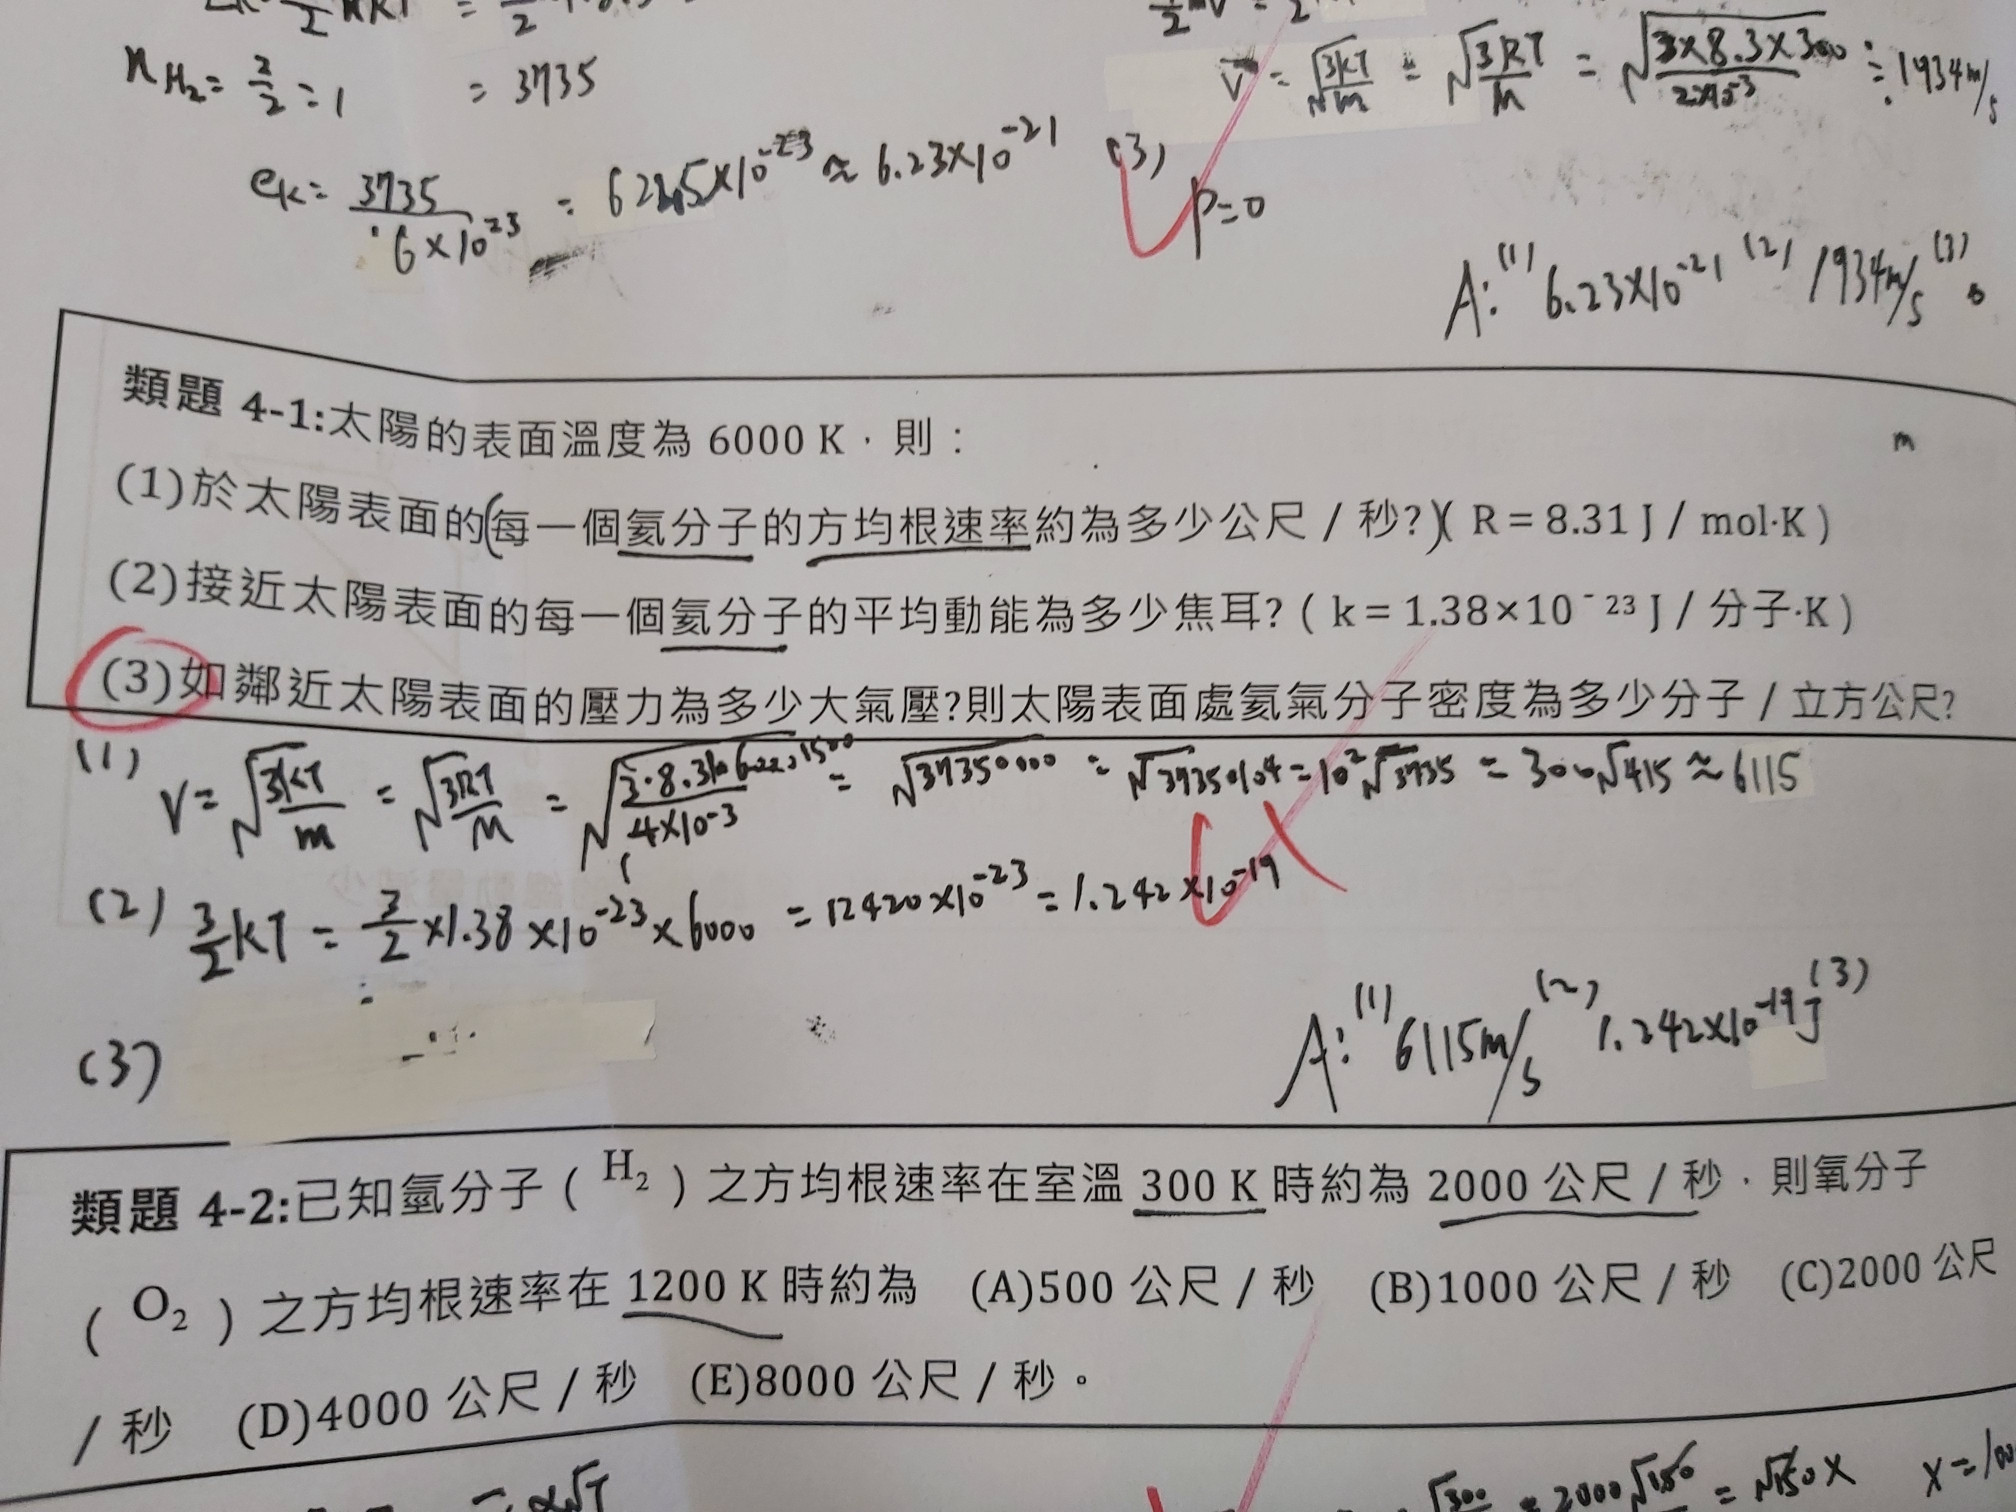 n H₂ = 2/2 = 1
= 3735
v = √(3kT/m) = √(3RT/M) = √(3×8.3×300/2×10⁻³) ≒ 1934 m/s
ek = 3735/6×10²³ = 622.5×10⁻²³ ≈ 6.23×10⁻²¹
(3)
p=0
A: (1) 6.23×10⁻²¹ (2) 1934 m/s (3) 0
類題 4-1:太陽的表面溫度為 6000 K，則：
m
(1)於太陽表面的(每一個氦分子的方均根速率約為多少公尺 / 秒?)( R = 8.31 J / mol·K )
(2)接近太陽表面的每一個氦分子的平均動能為多少焦耳? ( k = 1.38×10⁻²³ J / 分子·K )
(3)如鄰近太陽表面的壓力為多少大氣壓?則太陽表面處氦氣分子密度為多少分子 / 立方公尺?
(1) V = √(3kT/m) = √(3RT/M) = √(3·8.3·6000/4×10⁻³) 1500 = √37350000 = √3735·10⁴ = 10²√3735 = 300√415 ≈ 6115
(2) 3/2 kT = 3/2 ×1.38×10⁻²³×6000 = 12420×10⁻²³ = 1.242×10⁻¹⁹
(3)
A: (1) 6115 m/s (2) 1.242×10⁻¹⁹ J (3)
類題 4-2:已知氫分子 ( H₂ ) 之方均根速率在室溫 300 K 時約為 2000 公尺 / 秒，則氧分子
( O₂ ) 之方均根速率在 1200 K 時約為 (A)500 公尺 / 秒 (B)1000 公尺 / 秒 (C)2000 公尺
/ 秒 (D)4000 公尺 / 秒 (E)8000 公尺 / 秒。